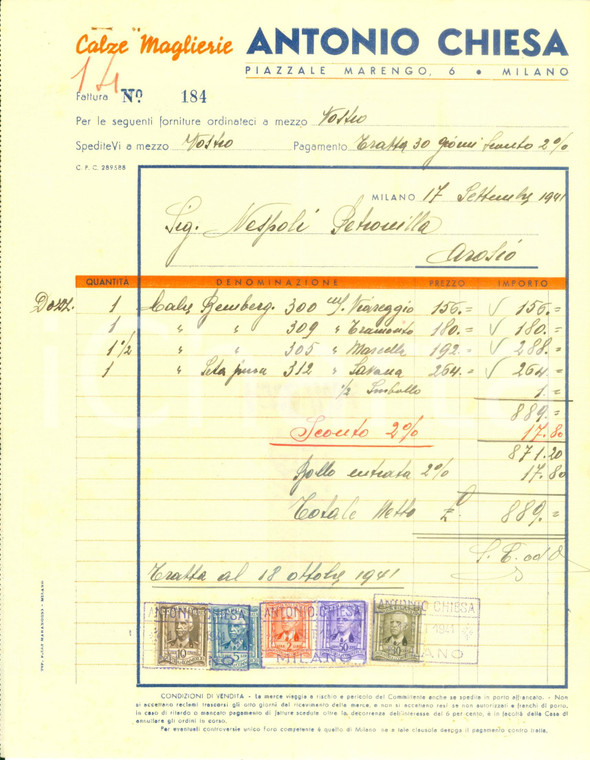 Calze Maglierie ANTONIO CHIESA
PIAZZALE MARENGO, 6 • MILANO
14
Fattura Nº 184
Per le seguenti forniture ordinateci a mezzo Vostro
SpediteVi a mezzo Vostro Pagamento Tratta 30 giorni sconto 2%
C. P. C. 289588
MILANO 17 Settembre 1941
Sig. Nespoli Petronilla
Arosio
QUANTITÀ DENOMINAZIONE PREZZO IMPORTO
Dozz. 1 Calze Bemberg. 300 cuf. Viareggio 156.= √ 156.=
1 " " 309 " Tramonto 180.= √ 180.=
1 1/2 " " 305 " Marcella 192.= √ 288.=
1 " Seta pura 312 " Savana 264.= √ 264.=
1/2 Imballo 1.=
889.=
Sconto 2% 17.80
871.20
Bollo entrata 2% 17.80
Totale Netto £. 889.=
S. E. od O.
Tratta al 18 ottobre 1941
ANTONIO CHIESA ANTONIO CHIESA ANTONIO CHIESA
10 5 2 50 10
MILANO MILANO
CONDIZIONI DI VENDITA - La merce viaggia a rischio e pericolo del Committente anche se spedita in porto affrancato. - Non
si accettano reclami trascorsi gli otto giorni dal ricevimento della merce, e non si accettano resi se non autorizzati e franchi di porto.
In caso di ritardo o mancato pagamento di fatture scadute oltre la decorrenza dell'interesse del 6 per cento, è in facoltà della Casa di
annullare gli ordini in corso.
Per eventuali controversie unico Foro competente è quello di Milano ne a tale clausola deroga il pagamento contro tratta.